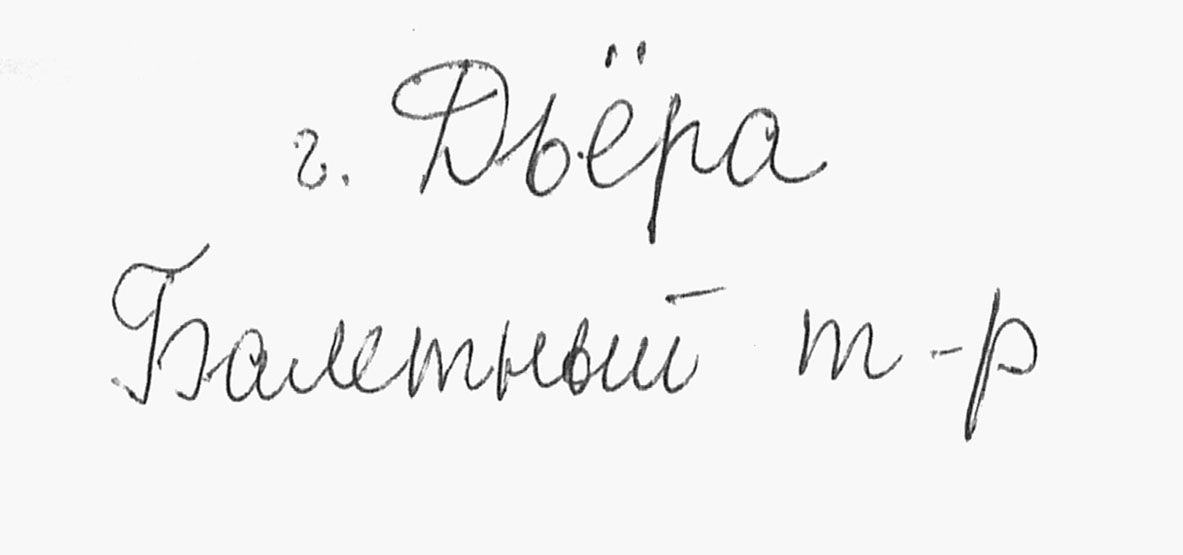 г. Дьёра
Балетный т-р